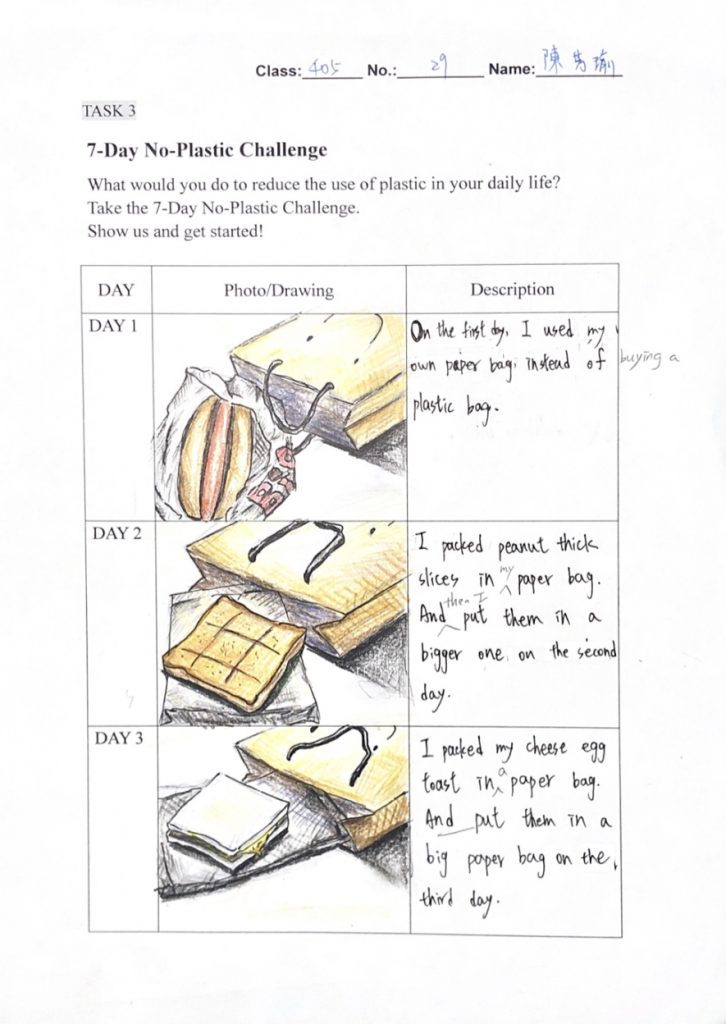 Class: 405 No.: 29 Name: 陳芳瑜
TASK 3
7-Day No-Plastic Challenge
What would you do to reduce the use of plastic in your daily life?
Take the 7-Day No-Plastic Challenge.
Show us and get started!
DAY Photo/Drawing Description
DAY 1
On the first day, I used my
own paper bag, instead of buying a
plastic bag.
DAY 2
I packed peanut thick
slices in my paper bag.
And then I put them in a
bigger one on the second
day.
DAY 3
I packed my cheese egg
toast in a paper bag.
And put them in a
big paper bag on the
third day.